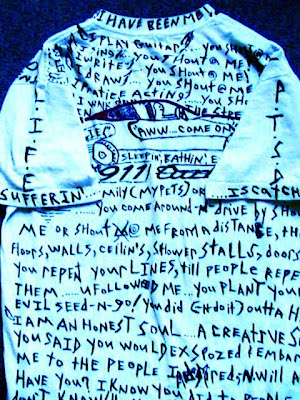 I HAVE BEEN ME!
I PLAY GUITAR.... YOU SHOUT@
I SING.. YOU SHOUT @ ME
I WRITE.. YOU SHOUT @ ME!
I DRAW.... YOU SHOUT@ME
I PRACTICE ACTING.... YOU SH
I WALK DOWN THE STRE
L.I.F.E.
P.T.S.D.
"AWW... COME ON!
SLEEPIN', EATHIN', E
911
SUFFERIN'..... MILY (MY PETS) OR .... IS CATCH
YOU COME AROUND -N- DRIVE BY SHO
ME OR SHOUT @ ME FROM A DISTANCE, TH
FLOORS, WALLS, CEILIN'S, SHOWER STALLS, DOORS
YOU REPEAT YOUR LINES, TILL PEOPLE REPE
THEM ..... U FOLLOWED ME... YOU PLANT YOUR
EVIL SEED -N- GO! YOU DID (-N- DO IT) OUTTA H
I AM AN HONEST SOUL .... A CREATIVE S
YOU SAID YOU WOULD EXSPOZED & EMBAR
ME TO THE PEOPLE I INSPIRED; -N- WILL A
HAVE YOU? I KNOW YOU DID TO PEOPLE